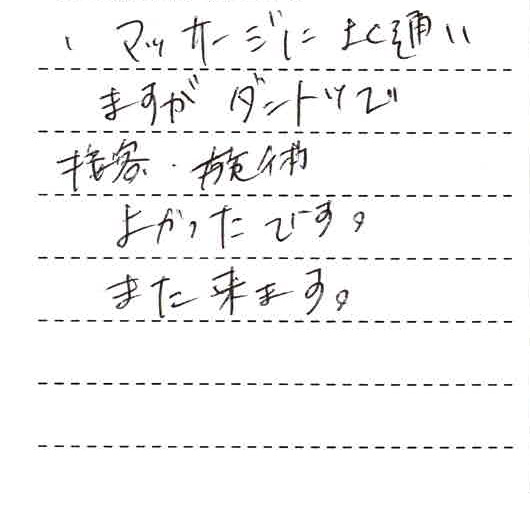 、マッサージによく通い
ますが ダントツで
接客・施術
よかったです。
また来ます。